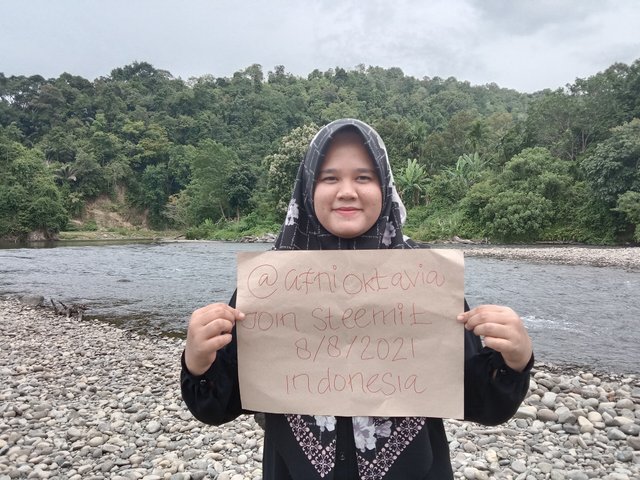 @afni oktavia
Join Steemit
8/8/2021
indonesia